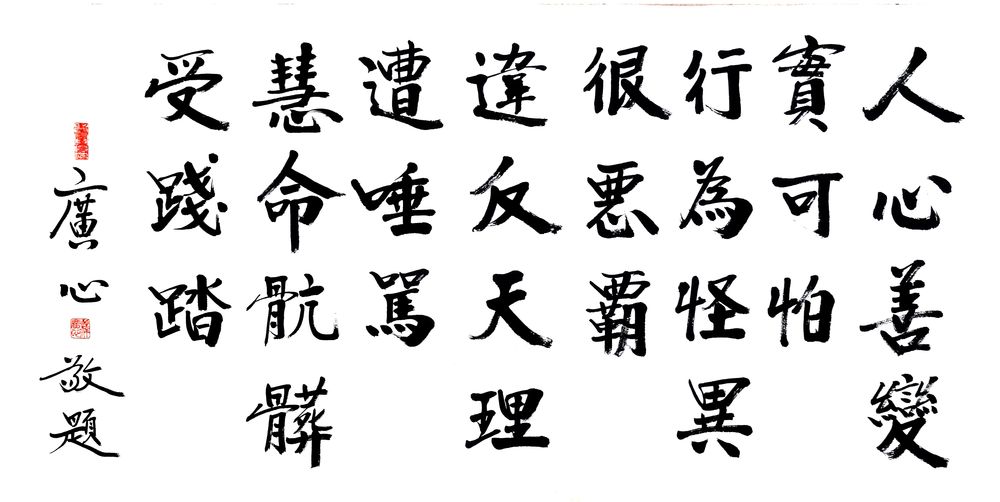 人心善變
實可怕
行為怪異
很惡霸
違反天理
遭唾罵
慧命骯髒
受踐踏
廣心
敬題